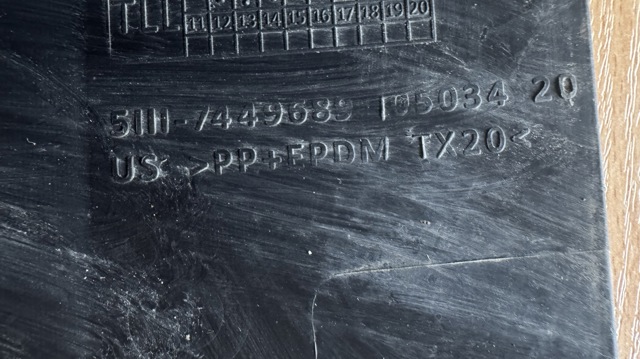 TLL
11 12 13 14 15 16 17 18 19 20
5111-7449689 105034 2Q
US >PP+EPDM TX20<